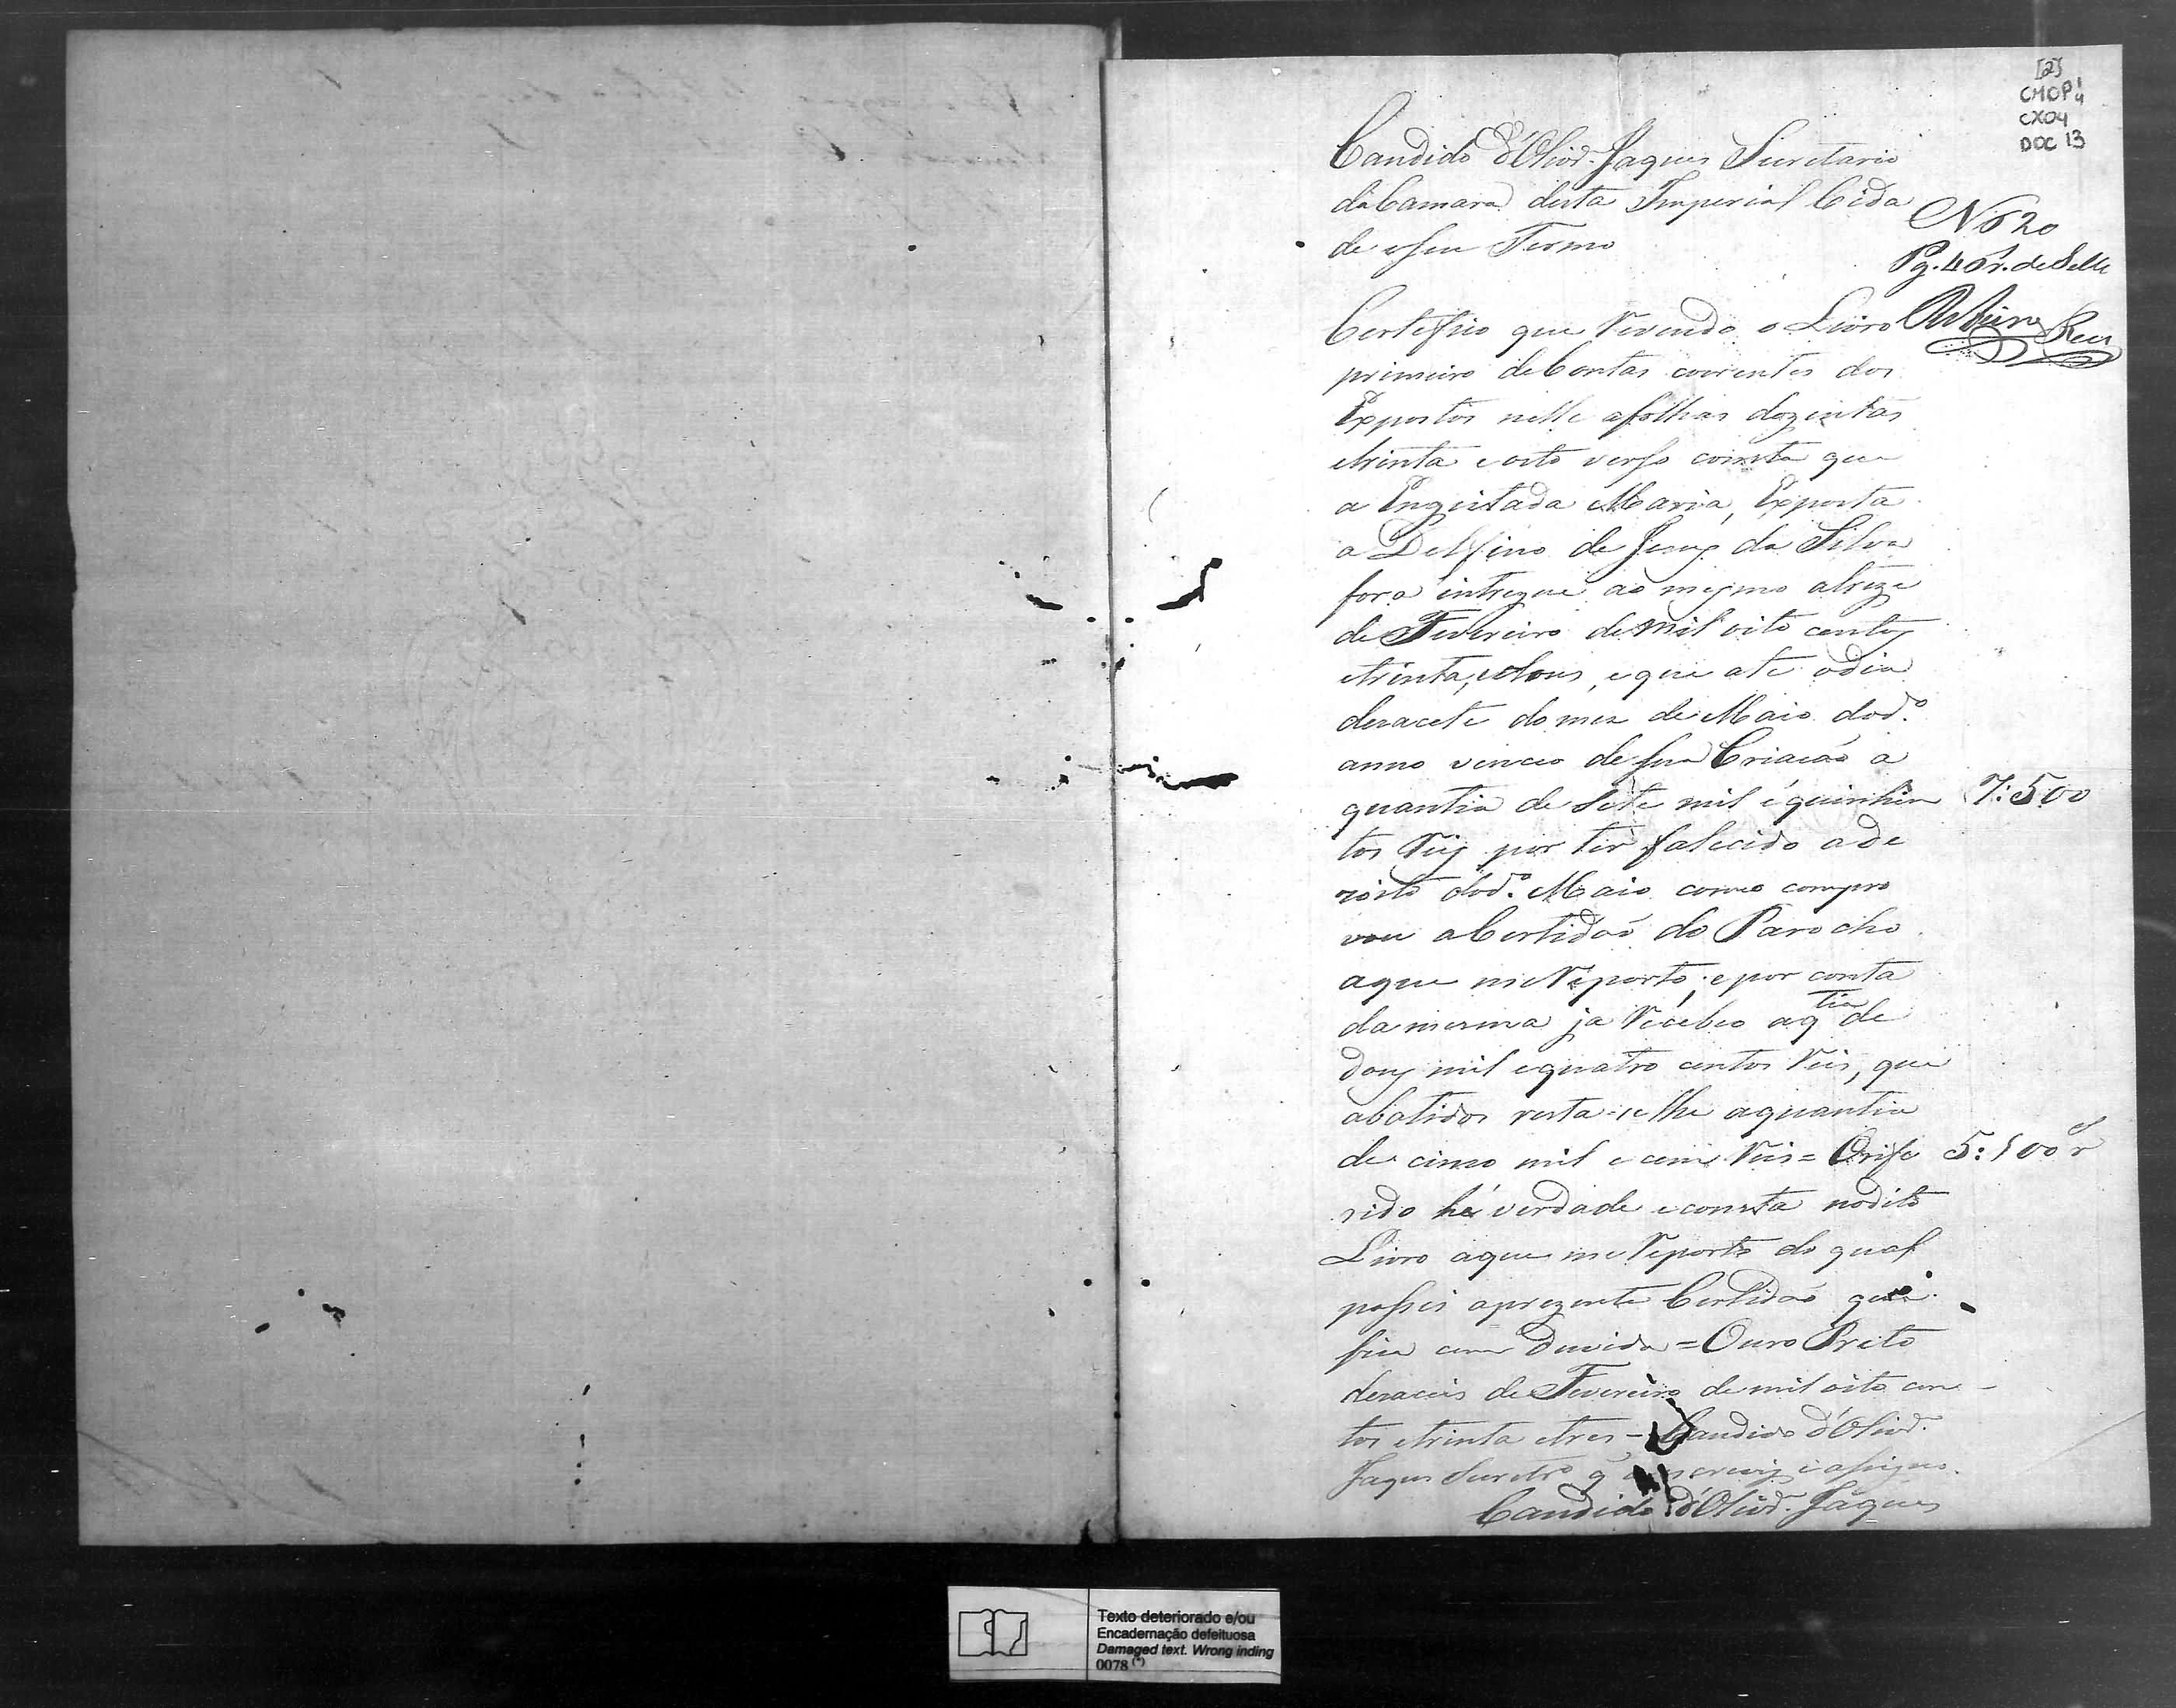 [2]
CMOP 1/4
CX04
DOC 13
Candido d'Olivr.ª Jaques Secretario
da Camara desta Imperial Cida
de eseu Termo
Nº 620
Pg. 40 r. de Sello
Certefico que Revendo o Livro
primeiro de Contas correntes dos
Expostos nelle afolhas dozentas
etrinta e oito verso consta que
a Engeitada Maria, Exposta
a Delfino de Jesus da Silva
fora entregue ao mesmo atreze
de Fevereiro de mil oito centos
etrinta, edous, e que até odia
dezacete do mez de Maio dod.º
anno venceo de sua Criacaõ a
quantia de Sete mil e quinhen
7:500
tos Reis por ter falecido a de
zoito dod.º Maio como compro
vou a Certidaõ do Parocho
aque me Reporto, e por conta
da mesma ja Recebeo aq.tia de
dous mil equatro centos Reis, que
abatidos resta-selhe aquantia
de cinco mil e cem Reis = O rife
5:100 rs
rido hé verdade econsta nodito
Livro aque me Reporto do qual
passei aprezente Certidaõ que
fiea cem Duvida = Ouro Preto
dezaceis de Fevereiro de mil oito cen-
tos etrinta etres - Candido d'Olivr.ª
Jaques Secretrº q̃ escrevy e asigno.
Candido d'Olivr.ª Jaques
Texto deteriorado e/ou
Encadernação defeituosa
Damaged text. Wrong inding
0078 (*)